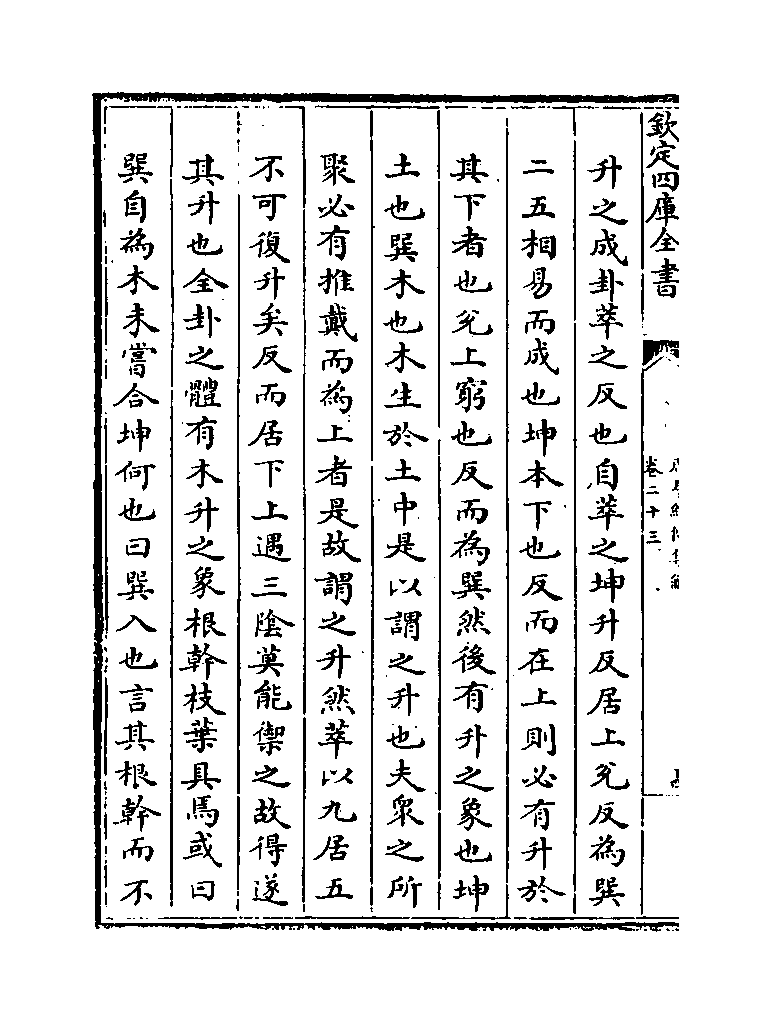 欽定四庫全書
卷二十三
升之成卦萃之反也自萃之坤升反居上兊反為巽
二五相易而成也坤本下也反而在上則必有升於
其下者也兊上窮也反而為巽然後有升之象也坤
土也巽木也木生於土中是以謂之升也夫衆之所
聚必有推戴而為上者是故謂之升然萃以九居五
不可復升矣反而居下上遇三陰莫能禦之故得遂
其升也全卦之體有木升之象根幹枝葉具焉或曰
巽自為木未嘗合坤何也曰巽入也言其根幹而不